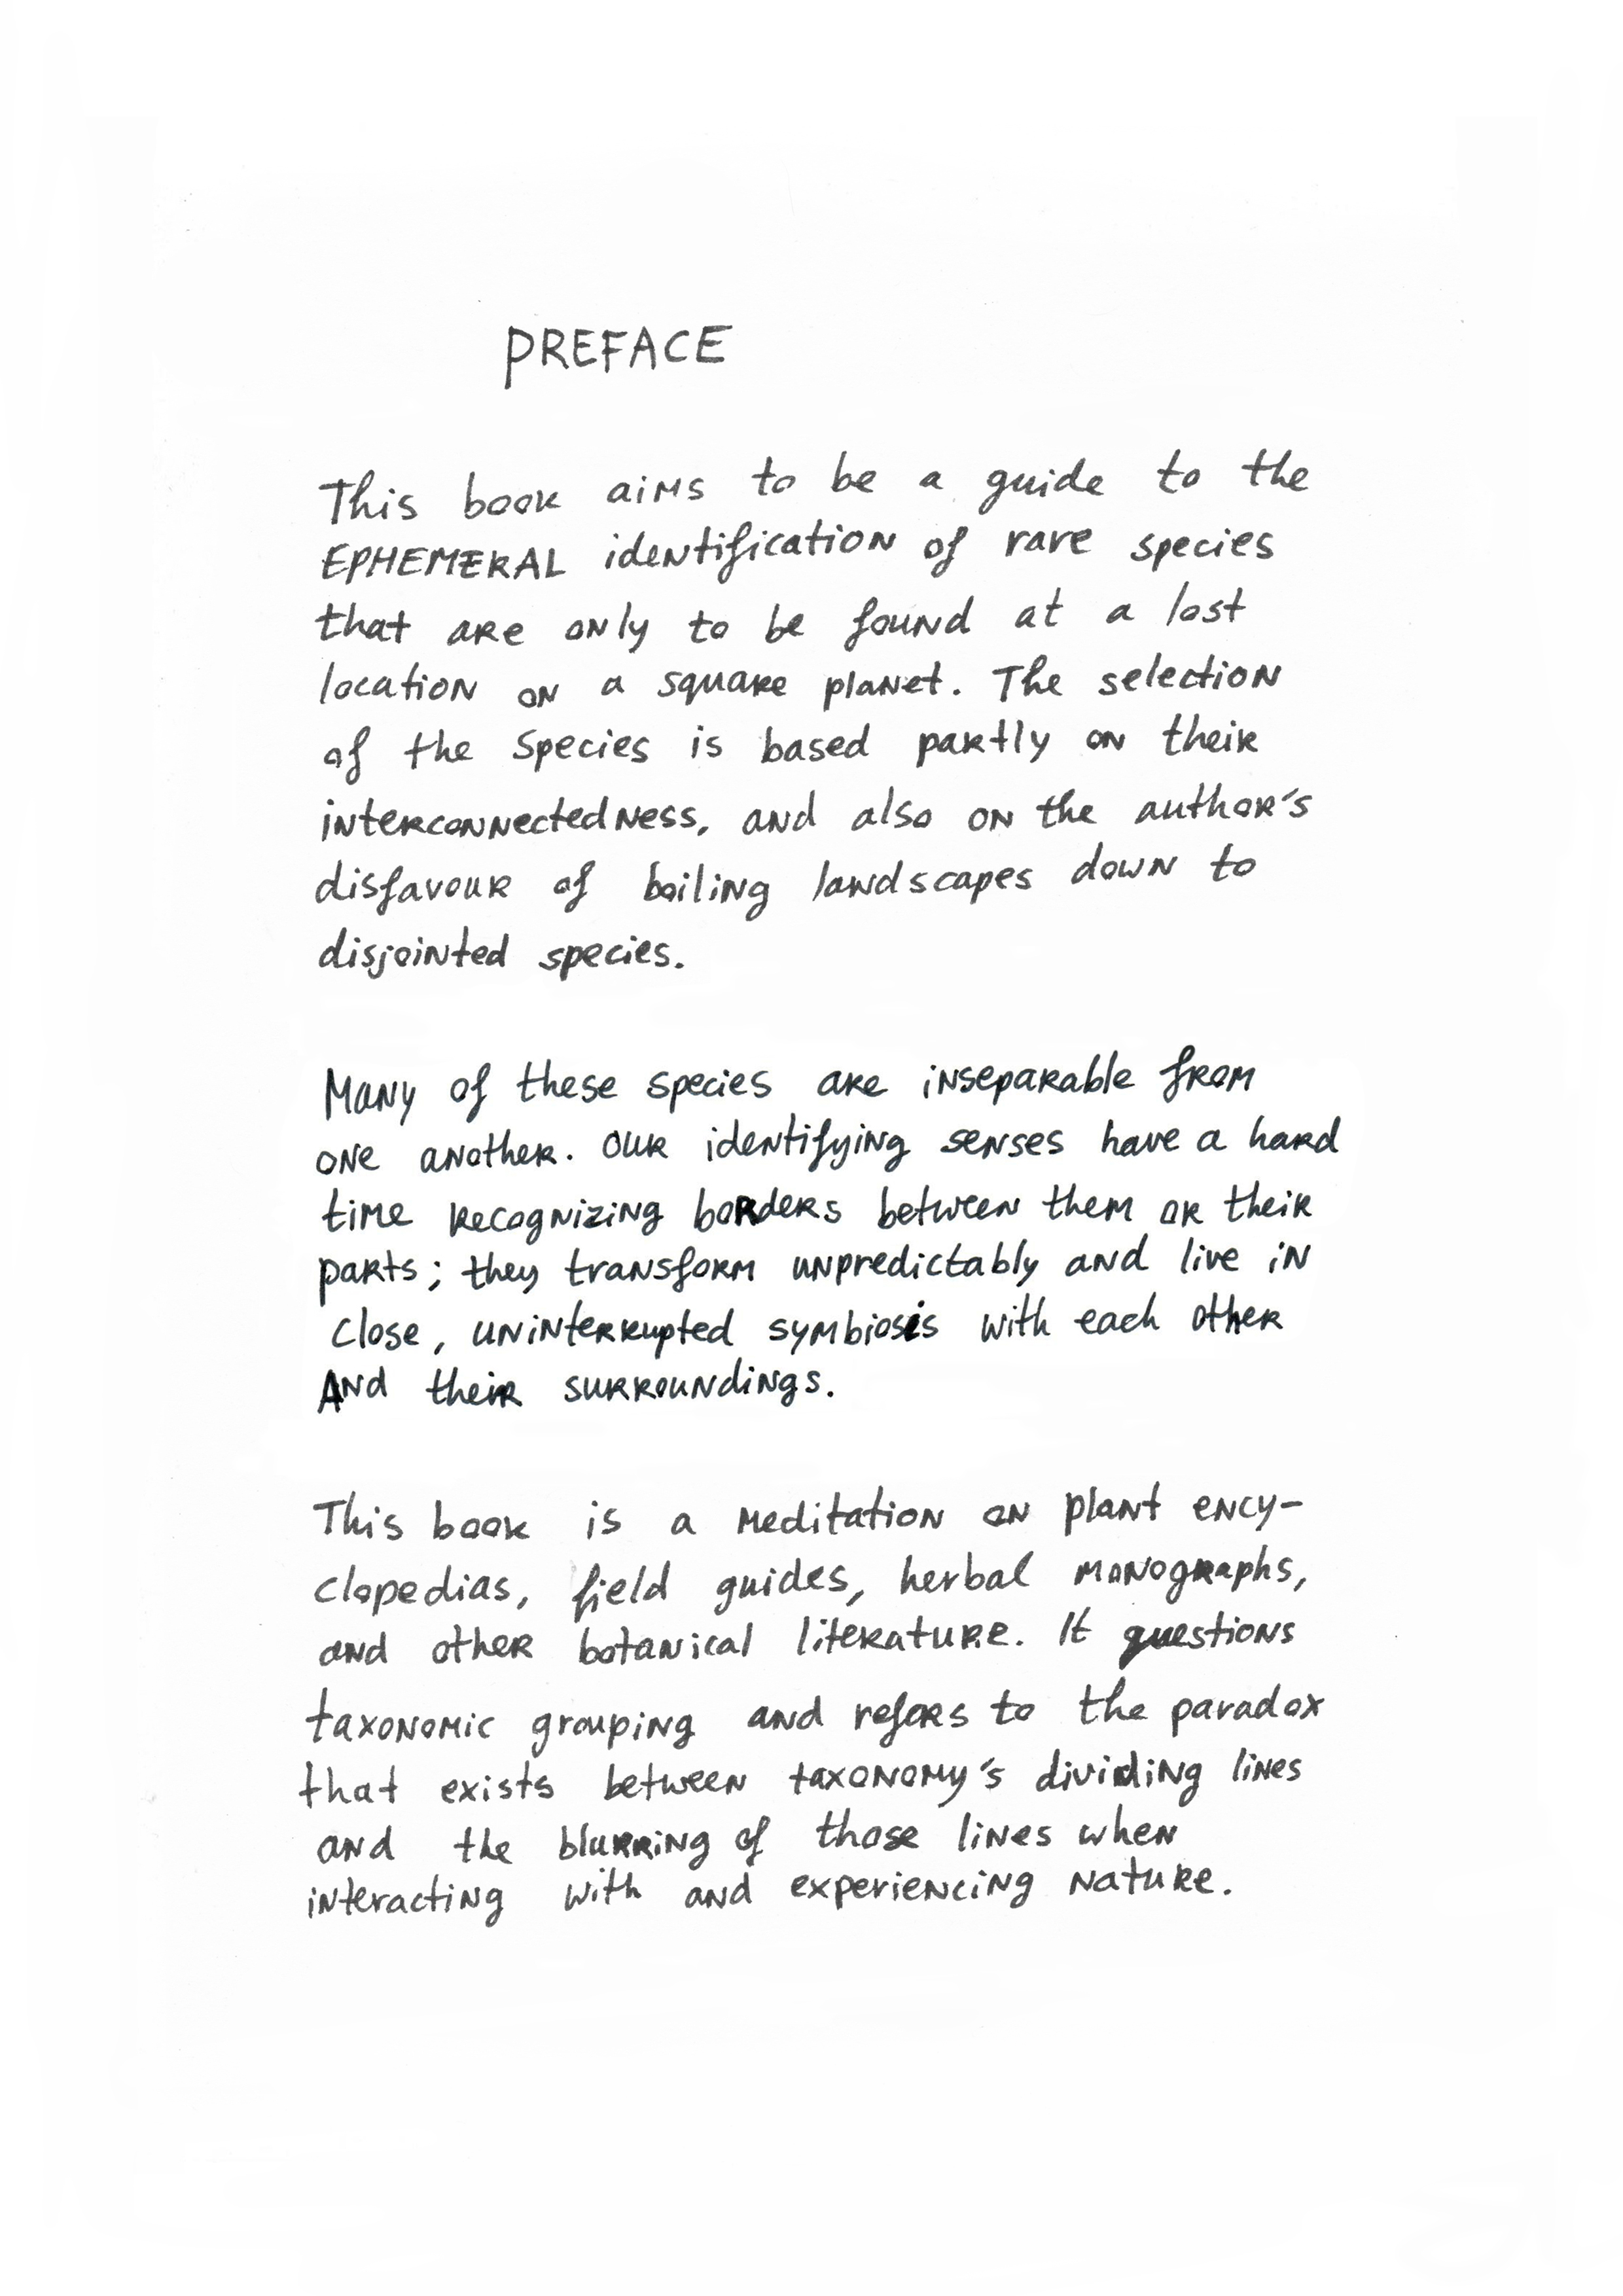 PREFACE
This book aims to be a guide to the
EPHEMERAL identification of rare species
that are only to be found at a lost
location on a square planet. The selection
of the species is based partly on their
interconnectedness, and also on the author's
disfavour of boiling landscapes down to
disjointed species.
Many of these species are inseparable from
one another. Our identifying senses have a hard
time recognizing borders between them or their
parts; they transform unpredictably and live in
close, uninterrupted symbiosis with each other
And their surroundings.
This book is a meditation on plant ency-
clopedias, field guides, herbal monographs,
and other botanical literature. It questions
taxonomic grouping and refers to the paradox
that exists between taxonomy's dividing lines
and the blurring of those lines when
interacting with and experiencing nature.